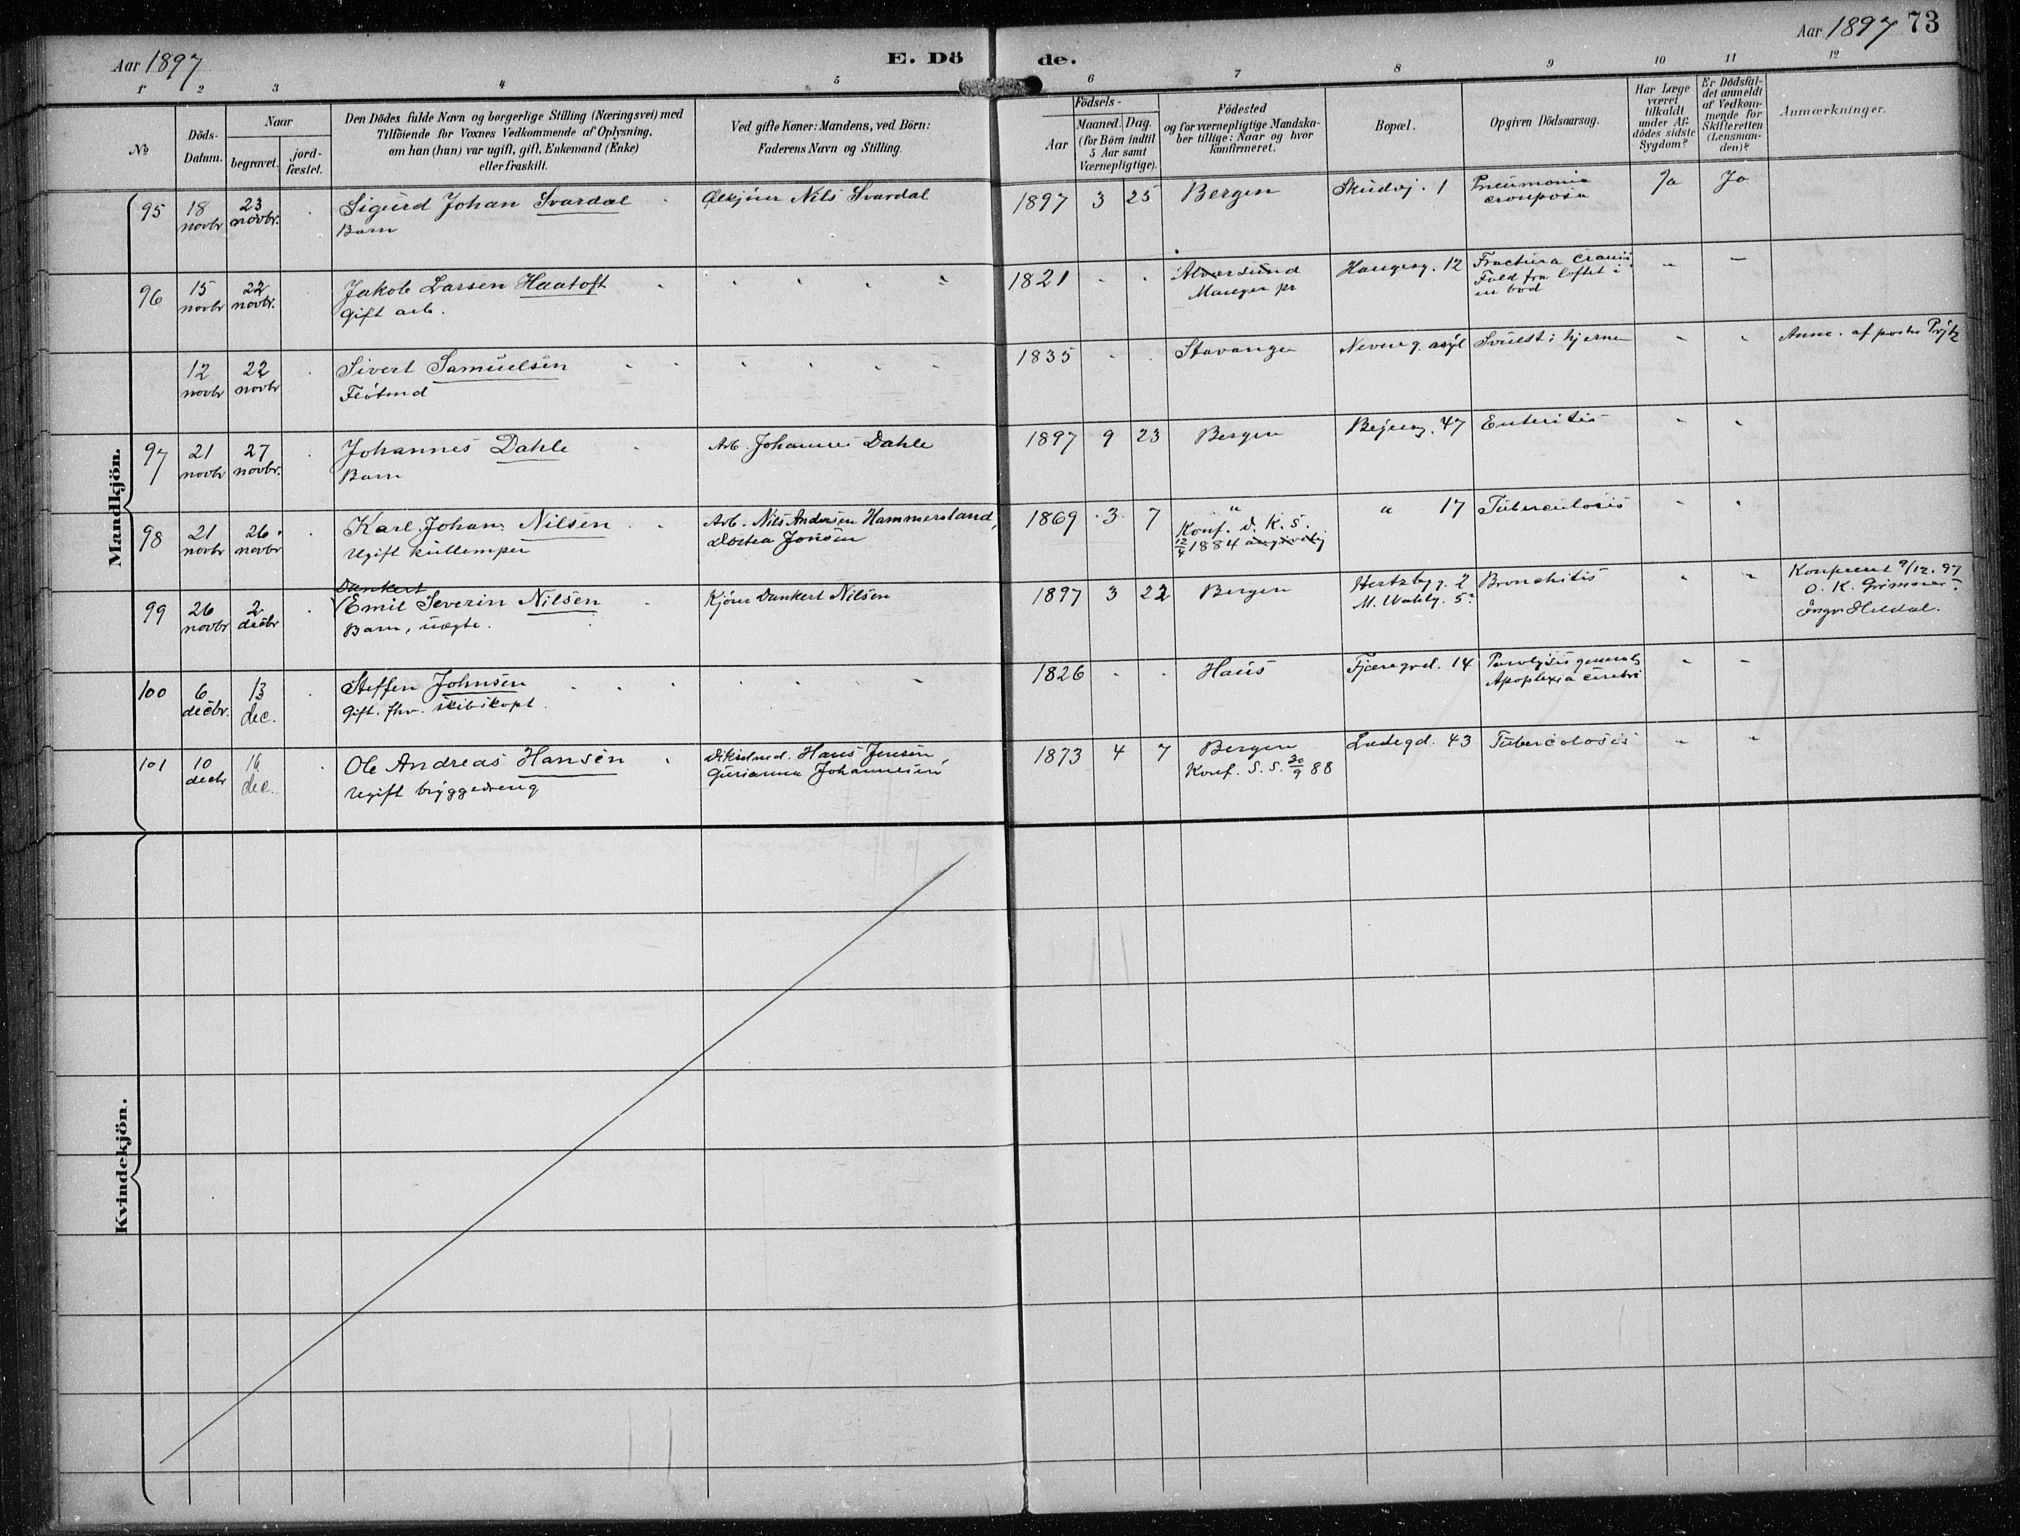 Aar 1897
E. Dö
de.
Aar 1897 73
1 2 3 4 5 6 7 8 9 10 11 12
No
Döds-
Datum.
Naar
begravet. jord-
fæstet.
Den Dödes fulde Navn og borgerlige Stilling (Næringsvei) med
Tilföiende for Voxnes Vedkommende af Oplysning,
om han (hun) var ugift, gift, Enkemand (Enke)
eller fraskilt.
Ved gifte Koner: Mandens, ved Börn:
Faderens Navn og Stilling.
Födsels-
Aar
Maaned. Dag.
(for Börn indtil
5 Aar samt
Værnepligtige).
Födested
og for værnepligtige Mandska-
ber tillige: Naar og hvor
konfirmeret.
Bopæl.
Opgiven Dödsaarsag.
Har Læge
været
tilkaldt
under Af-
dödes sidste
Sygdom?
Er Dödsfal-
det anmeldt
af Vedkom-
mende for
Skifteretten
(Lensman-
den)?
Anmærkninger.
Mandkjön.
95 18 novbr 23 novbr.
Sigurd Johan Svardal
Barn
Nils Svardal
1897 3 25 Bergen
Skudvj. 1
Pneumonia
crouposa
Ja Ja
96 15 novbr 22 novbr.
Jakob Larsen Haatoft
Gift arb.
1821
Alversund
Manger pr
Haugesg. 12
Fractura cranii
Fald fra loftet i
en bod
12 novbr 22 novbr
Sivert Samuelsen
1835 Stavanger
Neveng. asyl
Svulst i hjernen
Anm. af pastor
97 21 novbr 27 novbr.
Johannes Dahle
Barn
Arb. Johannes Dahle
1897 9 23 Bergen
47
Enteritis
98 21 novbr 26 novbr
Karl Johan Nilsen
Ugift kullemper
Arb. Nils Andersen Hammersland,
Dortea Jonsen
1869 3 7 "
Konf. D. K. S.
12/4 1884
" 17
Tuberculosis
99 26 novbr 2 decbr
Dankert
Emil Severin Nilsen
Barn, uægte.
Kjører Dankert Nilsen
1897 3 22 Bergen
Hertzbg g. 2
M. Wahlg. 5
Bronchitis
9/12. 97
O. K. Grimsner
Ingv. Heldal.
100 6 decbr. 13 dec.
Steffen Johnsen
Gift. fhv. skibskapt.
1826 Haus
Fjæregrd. 14
Paralysis generalis
Apoplexia cerebri
101 10 decbr 16 dec.
Ole Andreas Hansen
Ugift bryggedreng
Hans Jensen,
Gurianna Johannesen
1873 4 7 Bergen
Konf. S. S. 20/9 88
Ladegd. 43
Tuberculosis
Kvindekjön.